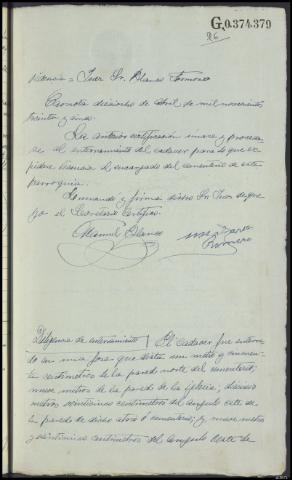 G.0.374.379
26
Providencia = Juez Sr. Blanco Formoso
Arzua dieciocho de abril de mil novecientos
treinta y uno.
La anterior certificacion unase y proceda-
se al enterramiento del cadaver para lo que ex-
pidase licencia al encargado del cementerio de esta
parroquia.
Lo manda y firma dicho Sr. Juez de que
yo el Secretario certifico.
Manuel Blanco
Romero
Diligencia de enterramiento El cadaver fue enterra-
do en una fosa que dista un metro y cincuen-
ta centimetros de la pared norte del cementerio;
nueve metros de la pared de la iglesia; dieciseis
metros centimetros del angulo este de
la pared de dicho atrio ó cementerio; y nueve metros
y centimetros del angulo oeste de